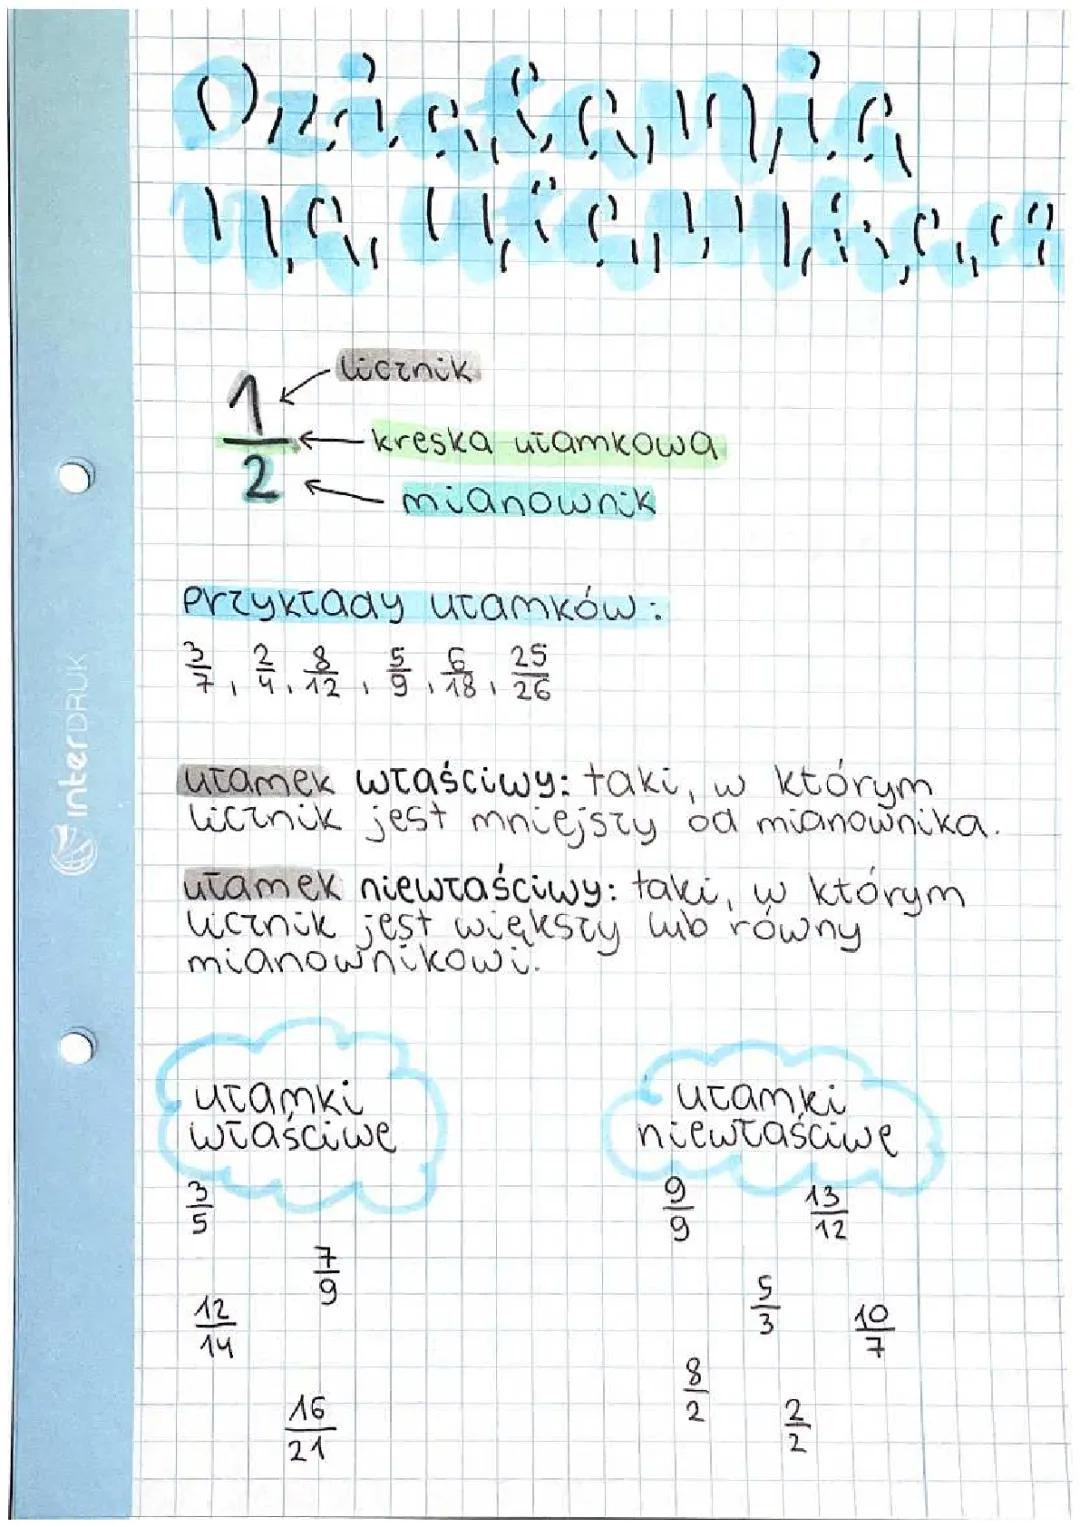 Działania
na ułamkach
1 licznik
kreska ułamkowa
2 mianownik
Przykłady ułamków:
3/7, 2/4, 8/12, 5/9, 6/18, 25/26
ułamek właściwy: taki, w którym
licznik jest mniejszy od mianownika.
ułamek niewłaściwy: taki, w którym
licznik jest większy lub równy
mianownikowi.
ułamki
właściwe
ułamki
niewłaściwe
3/5
7/9
12/14
16/21
9/9
13/12
5/3
10/7
8/2
2/2
interDRUK